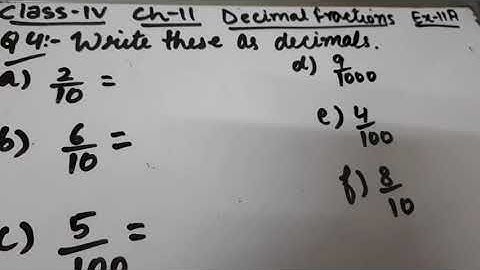 Class-IV Ch-11 Decimal fractions Ex-11A
Q4:- Write these as decimals.
a) 2/10 =
b) 6/10 =
c) 5/100 =
d) 9/1000
e) 4/100
f) 8/10